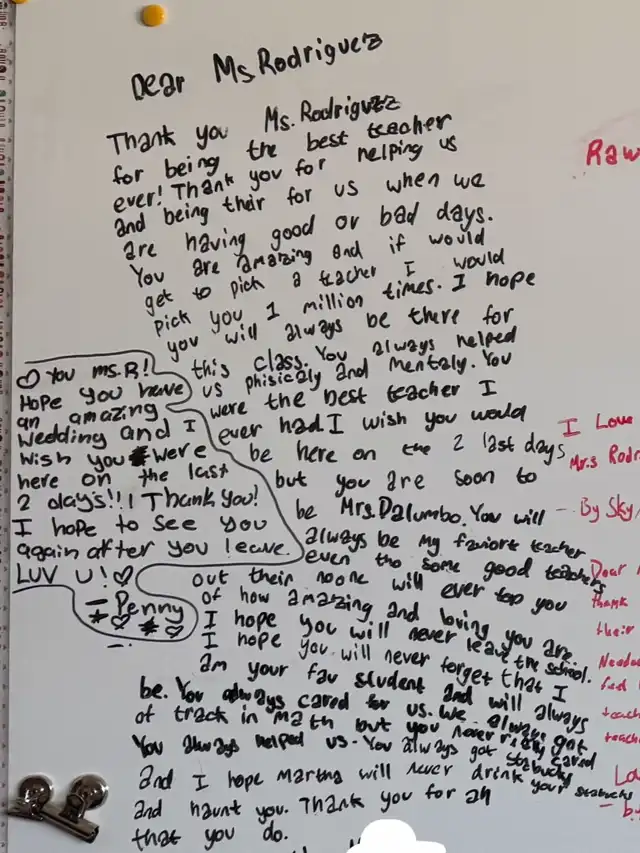 Dear Ms Rodriguez
Thank you Ms. Rodriguzz
for being the best teacher
ever! Thank you for helping us
and being their for us when we
are having good or bad days.
You are amazing and if would
get to pick a teacher I would
pick you 1 million times. I hope
you will always be there for
this class. You always helped
us phisicaly and mentaly. You
were the best teacher I
ever had I wish you would
be here on the 2 last days
but you are soon to
be Mrs. Dalumbo. You will
always be my faviort teacher
even tho some good teachers
out their noone will ever top you
of how amazing and loving you are.
I hope you will never leave the school.
I hope you will never forget that I
am your fav student and will always
be. You always cared for us. We always got
of track in math but you never really cared
You always helped us. You always got starbucks
and I hope Martha will never drink your starbucks
and haunt you. Thank you for all
that you do.
♡ You ms.R!
Hope you have
an amazing
wedding and I
wish you were
here on the last
2 days!!! Thank you!
I hope to see you
again after you leave.
LUV U!♡
— Penny
*♡*♡
Raw
I Love
Mr.s Rodr
- By Sky
Dear
thank
their
Neede
feel
teach
teach
Lo
- b